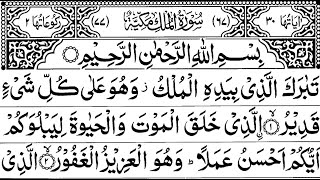 اٰیَاتُهَا ٣٠ (٦٧) سُوْرَةُ الْمُلْكِ مَكِّيَّةٌ (٧٧) رُكُوْعَاتُهَا ٢
بِسْمِ اللهِ الرَّحْمٰنِ الرَّحِيْمِ
تَبٰرَكَ الَّذِیْ بِیَدِهِ الْمُلْكُ ؗ وَهُوَ عَلٰی كُلِّ شَیْءٍ
قَدِیْرُ ۙ﴿١﴾ الَّذِیْ خَلَقَ الْمَوْتَ وَالْحَیٰوةَ لِیَبْلُوَكُمْ
اَیُّكُمْ اَحْسَنُ عَمَلًا ؕ وَهُوَ الْعَزِیْزُ الْغَفُوْرُ ۙ﴿٢﴾ الَّذِیْ